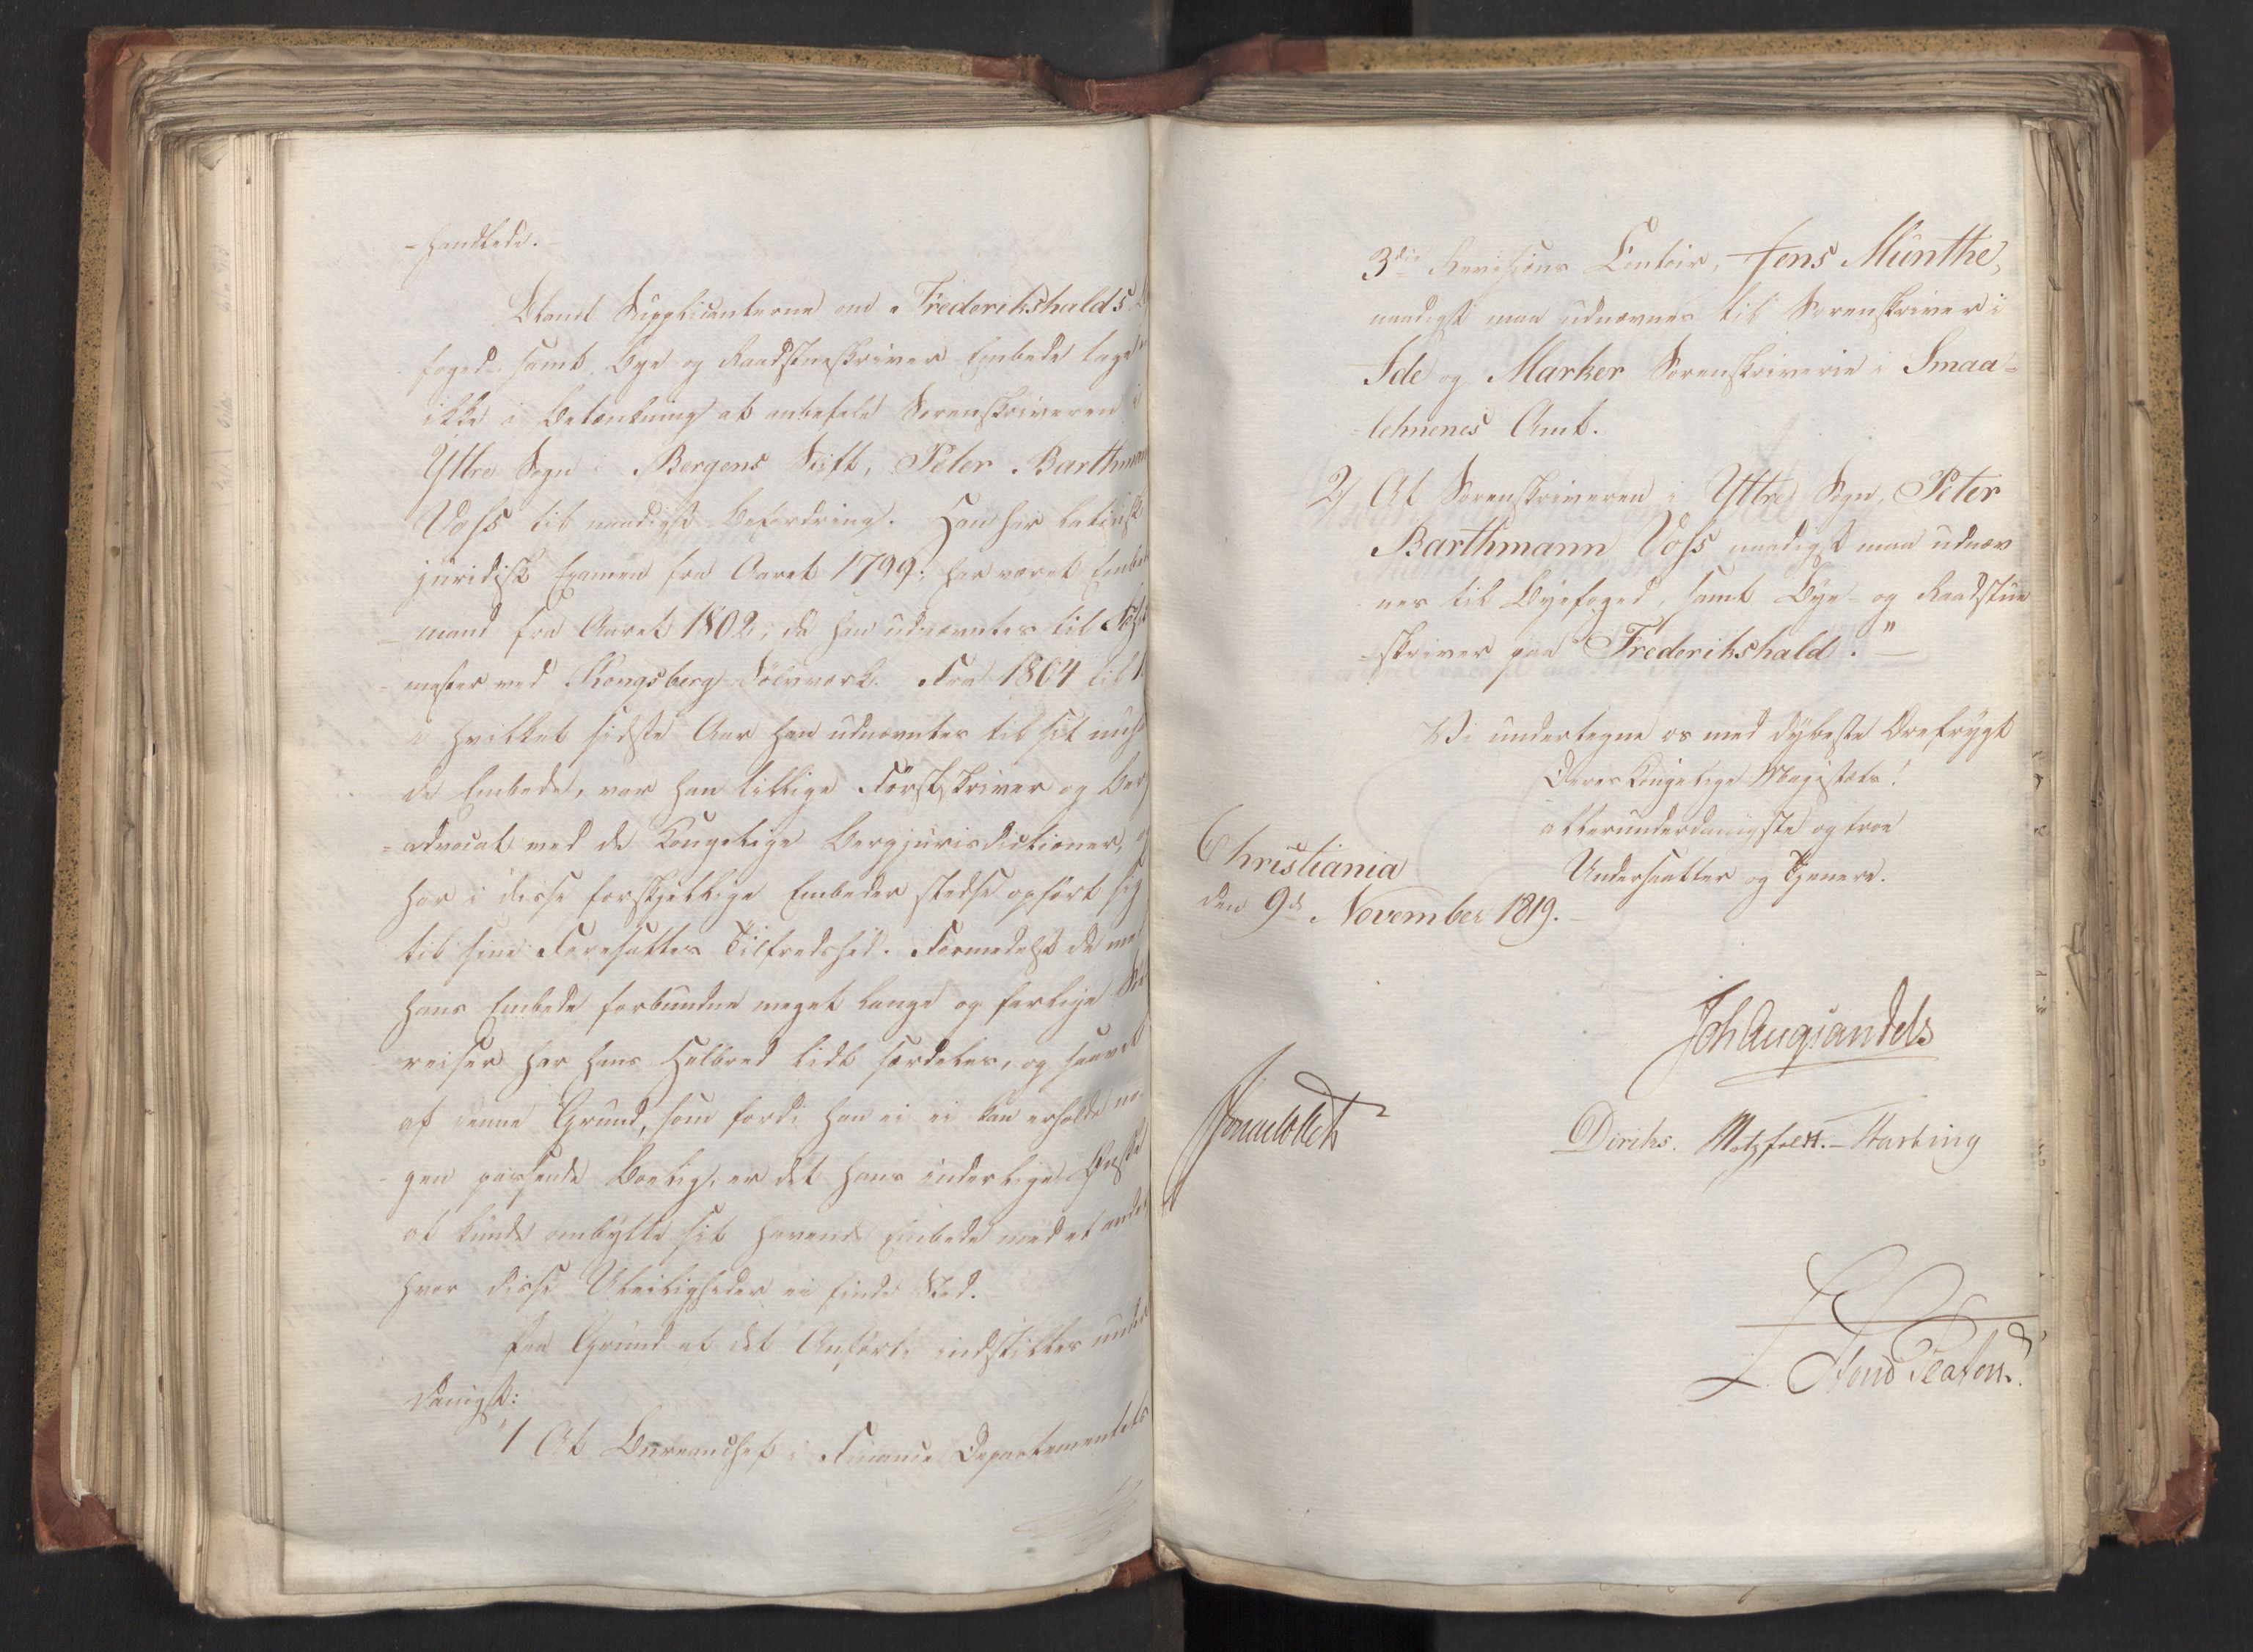 -handlede.
Blandt Supplicanterne om Frederikshalds
foged- samt Bye og Raadstueskriver Embede tages
ikke i Betænkning at anbefale Sorenskriveren i
Yttre Sogn i Bergens Stift, Peter Barthmann
Voss til naadigst Befordring. Han har latinsk
juridisk Examen fra Aaret 1799; har været Embeds
-mand fra Aaret 1802, da han udnævntes til
mester ved Kongsberg Sölvværk. Fra 1804 til
i hvilket sidste Aar han udnævntes til sit nuhavende
de Embede, var han tillige Förstskriver og Berg
=advocat ved de Kongelige Bergjurisdictioner, og
har i disse forskjellige Embeder stedse opfört sig
til sine Foresattes Tilfredshed. Formedelst de med
hans Embede forbundne meget lange og farlige Söe
reiser har hans Helbred lidt særdeles, og saavel
af denne Grund, som fordi han ei ei kan erholde no-
gen passende Boelig, er det hans inderlige Ønske
at kunde ombytte sit havende Embede med et andet,
hvor disse Uleiligheder ei finde Sted.
Paa Grund af det Anförte indstilles under
danigst:
"1 At Bureauchef i Finance Departementets
3die Revisions Contoir, Jens Münthe,
naadigst maa udnævnes til Sorenskriver i
Ide og Marker Sorenskriverie i Smaa=
-lehnenes Amt.
2) At Sorenskriveren i Yttre Sogn, Peter
Barthmann Voss naadigst maa udnæv
nes til Byefoged, samt Bye- og Raadstue
=skriver paa Frederikshald."
Vi undertegne os med dybeste Ærefrygt
Deres Kongelige Majestæts!
allerunderdanigste og troe
Undersaatter og Tjenere.
Christiania
den 9de November 1819.
Joh Aug Sandels
Jonas Collett
Diriks. Motzfeldt. Harbing